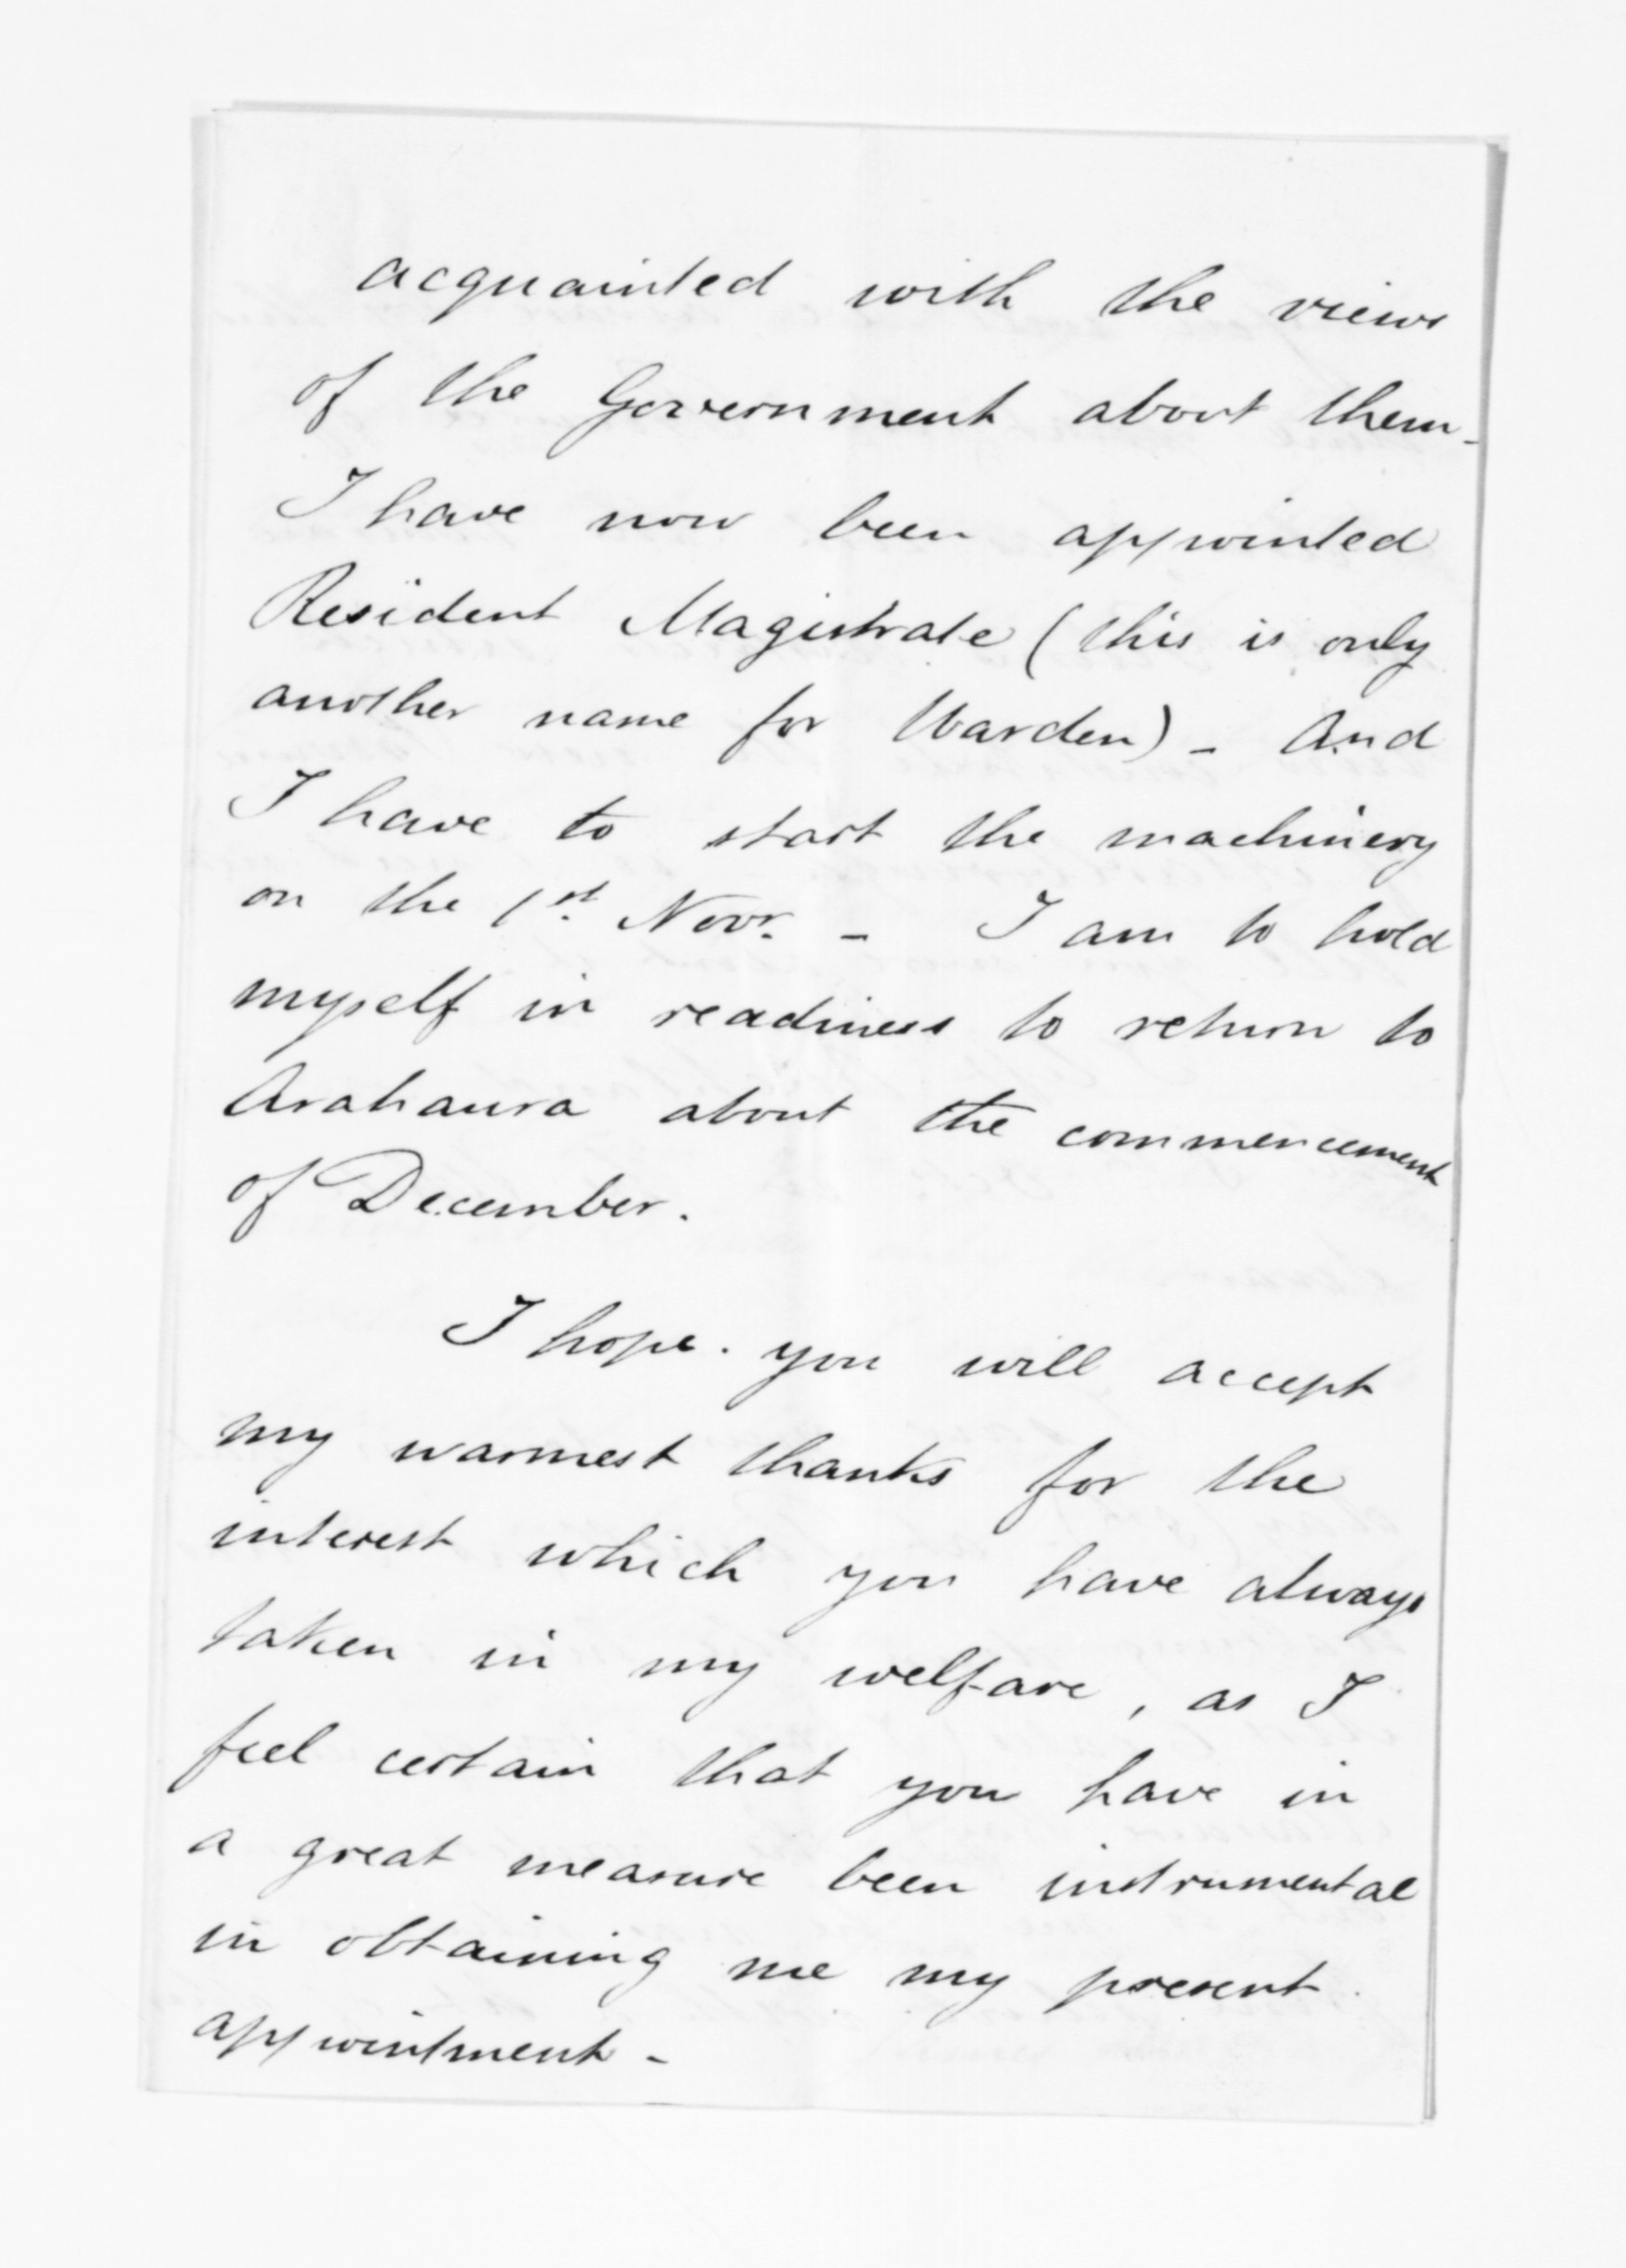 acquainted with the views
of the Government about them -
I have now been appointed
Resident Magistrate (this is only
another name for Warden) - And
I have to start the machinery
on the 1st. Novr. - I am to hold
myself in readiness to return to
Arahaura about the commencement
of December.
I hope. you will accept
my warmest thanks for the
interest which you have always
taken in my welfare, as I
feel certain that you have in
a great measure been instrumental
in obtaining me my present
appointment -